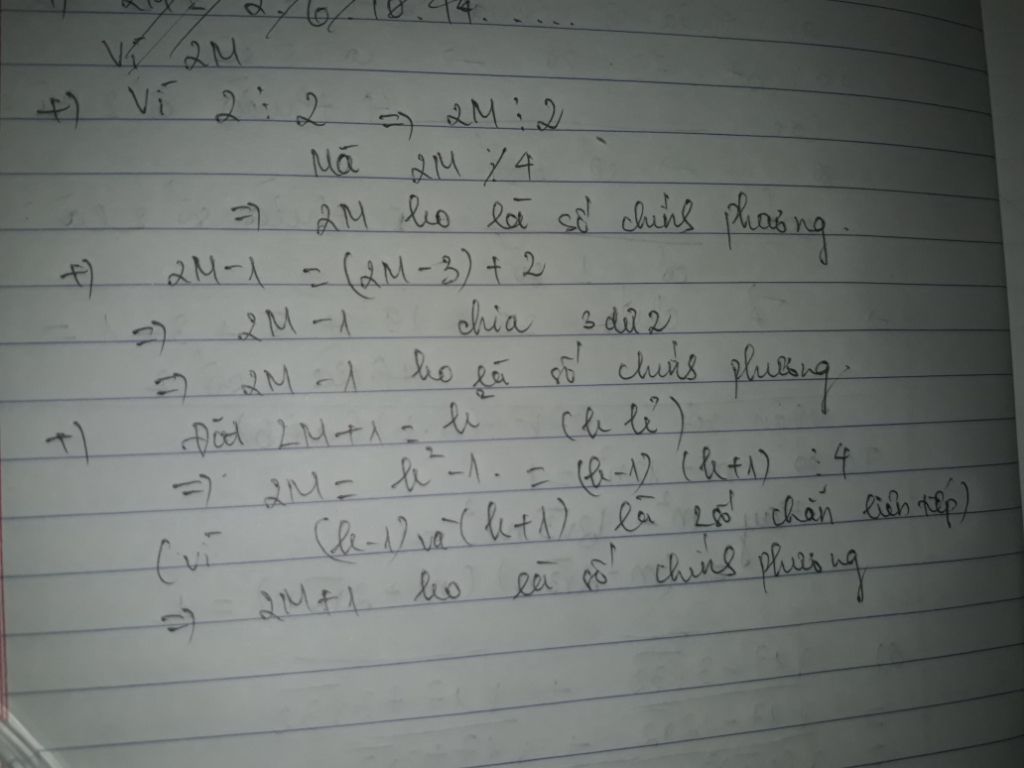 2. 6. 18. 14. .....
Vì 2M
+) Vì 2 ⋮ 2 ⇒ 2M ⋮ 2
Mà 2M ⋮̸ 4
⇒ 2M ko là số chính phương.
+) 2M-1 = (2M-3) + 2
⇒ 2M-1 chia 3 dư 2
⇒ 2M-1 ko là số chính phương.
+) 2M+1 = k² (k lẻ)
⇒ 2M = k²-1. = (k-1) (k+1) ⋮ 4
(vì (k-1) và (k+1) là 2 số chẵn liên tiếp)
⇒ 2M+1 ko là số chính phương